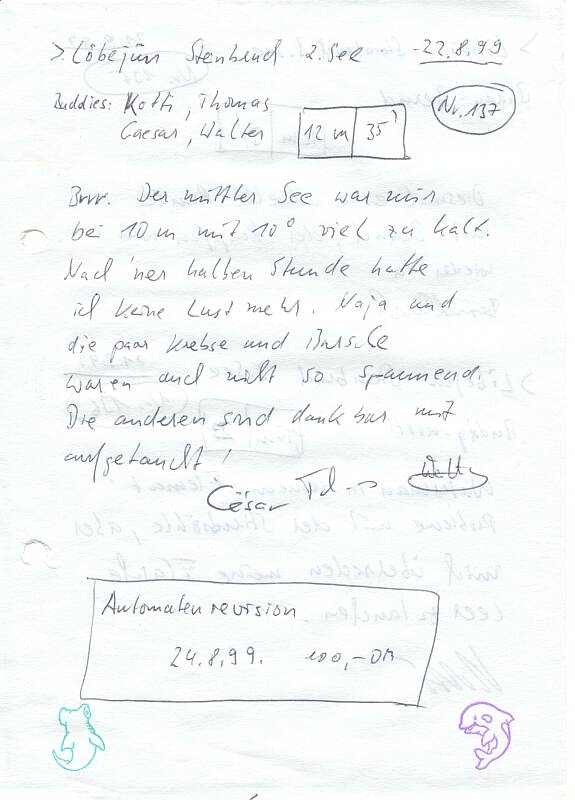 > Löbejün Steinbruch 2. See - 22.8.99
Buddies: Kotti, Thomas
Caesar, Walter
12 m 35'
Nr. 137
Brrr. Der mittlere See war mir
bei 10 m mit 10° viel zu kalt.
Nach 'ner halben Stunde hatte
ich keine Lust mehr. Naja und
die paar Krebse und Barsche
waren auch nicht so spannend.
Die anderen sind dankbar mit
aufgetaucht!
César
Automatenrevision
24.8.99. 100,-DM